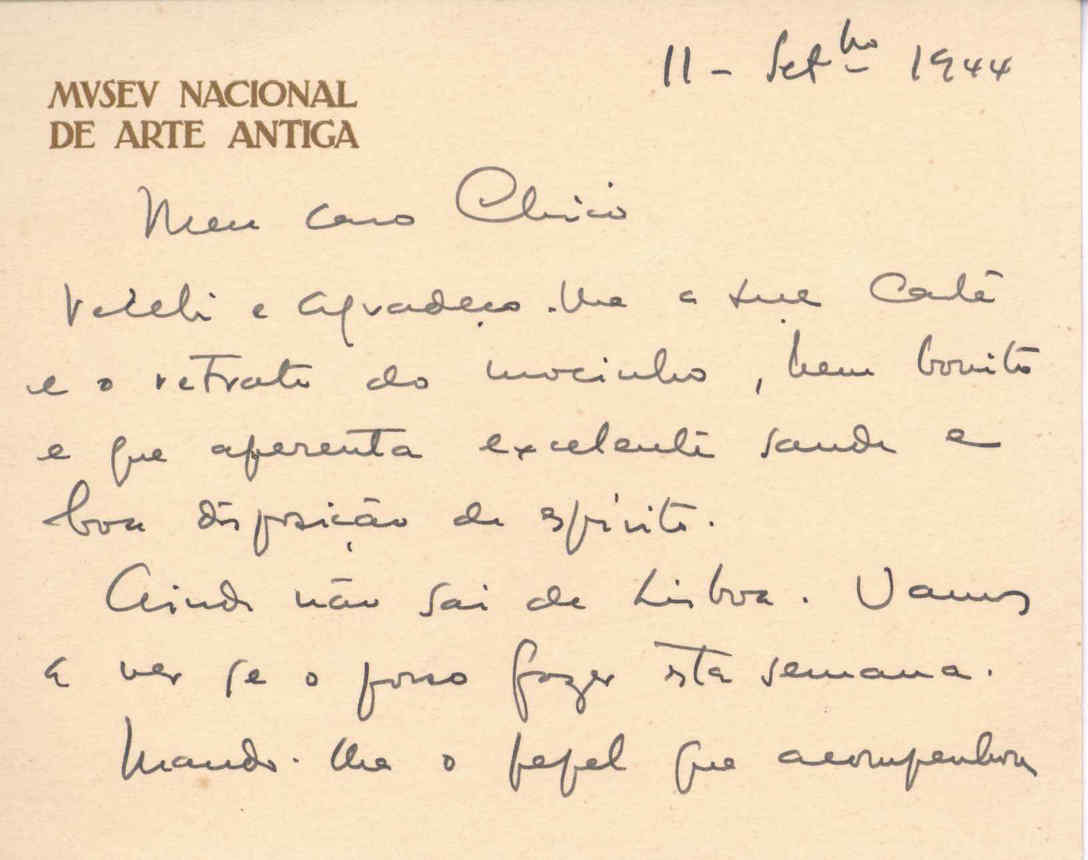 11 - Setbro 1944
MVSEV NACIONAL
DE ARTE ANTIGA
Meu caro Chicó
Recebi e agradeço-lhe a sua carta
e o retrato do mocinho, bem bonito
e que aparenta excelente saude e
boa disposição de espírito.
Ainda não sai de Lisboa. Vamos
a ver se o posso fazer esta semana.
Mando-lhe o papel que acompanhou